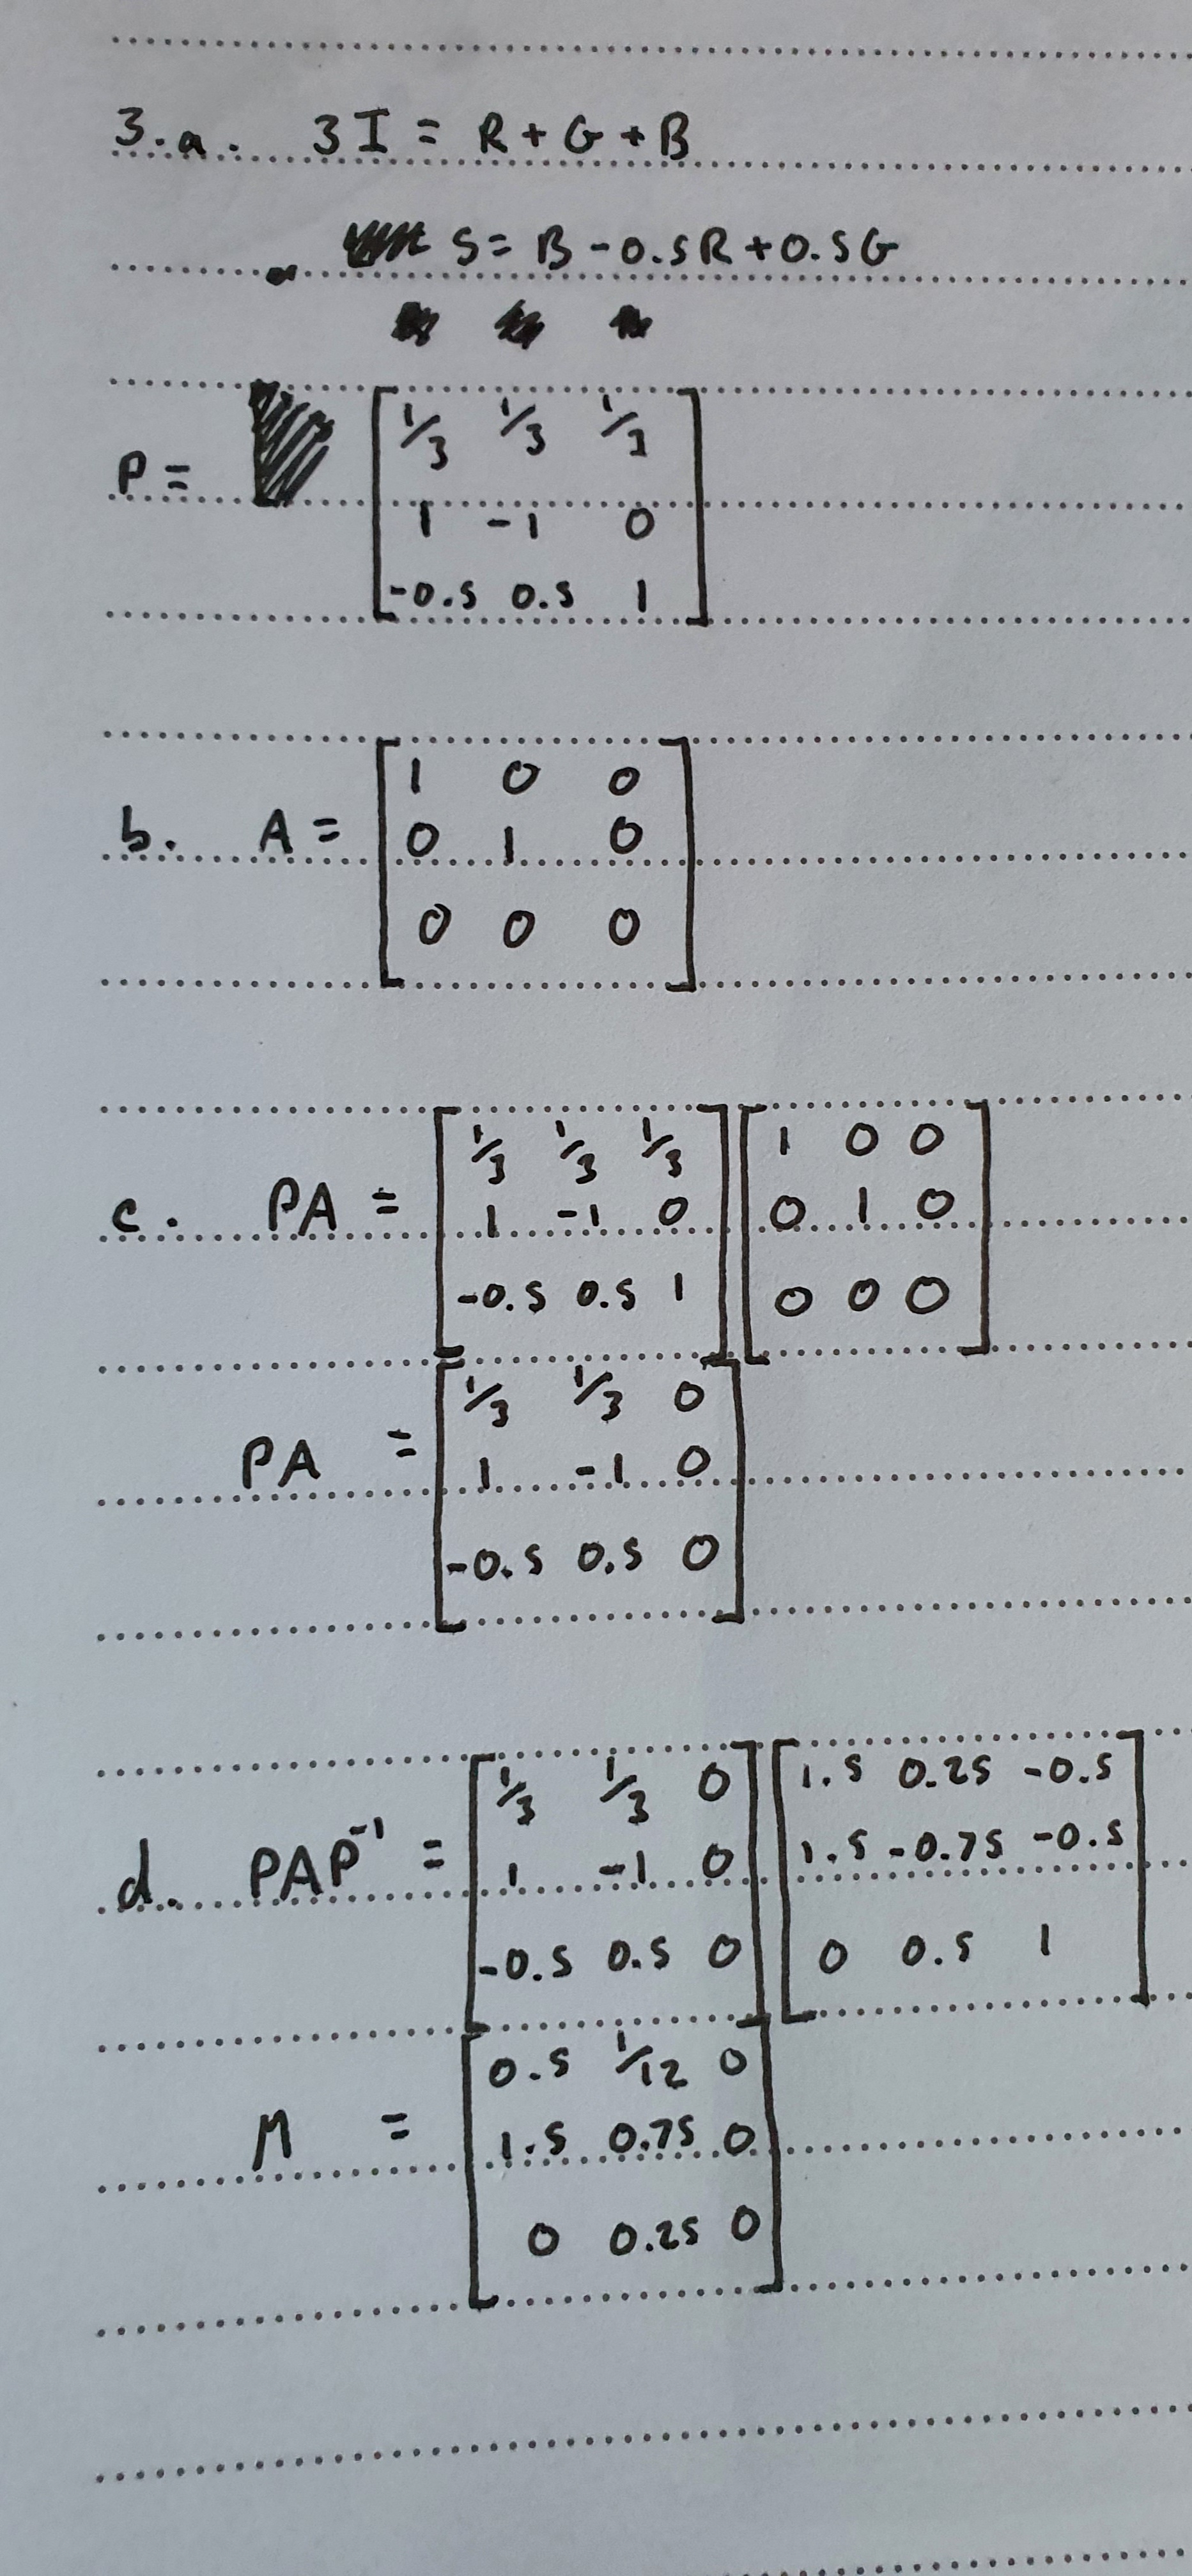 3.a. 3I = R + G + B
S = B - 0.5R + 0.5G
P = [ 1/3 1/3 1/3
1 -1 0
-0.5 0.5 1 ]
b. A = [ 1 0 0
0 1 0
0 0 0 ]
c. PA = [ 1/3 1/3 1/3 ] [ 1 0 0
1 -1 0 ] [ 0 1 0
-0.5 0.5 1 ] [ 0 0 0 ]
PA = [ 1/3 1/3 0
1 -1 0
-0.5 0.5 0 ]
d. PAP⁻¹ = [ 1/3 1/3 0 ] [ 1.5 0.25 -0.5
1 -1 0 ] [ 1.5 -0.75 -0.5
-0.5 0.5 0 ] [ 0 0.5 1 ]
M = [ 0.5 1/12 0
1.5 0.75 0
0 0.25 0 ]